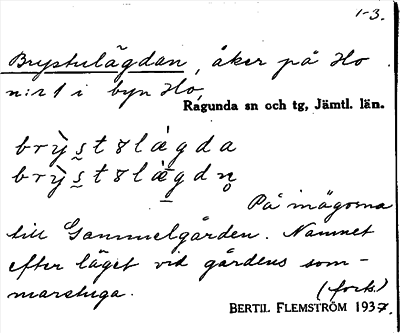 1-3.
Brystulägdan, åker på Ho
n:r 1 i byn Ho,
Ragunda sn och tg, Jämtl. län.
På inägorna
till Gammelgården. Namnet
efter läget vid gårdens som-
marstuga. (forts.)
BERTIL FLEMSTRÖM 1937.